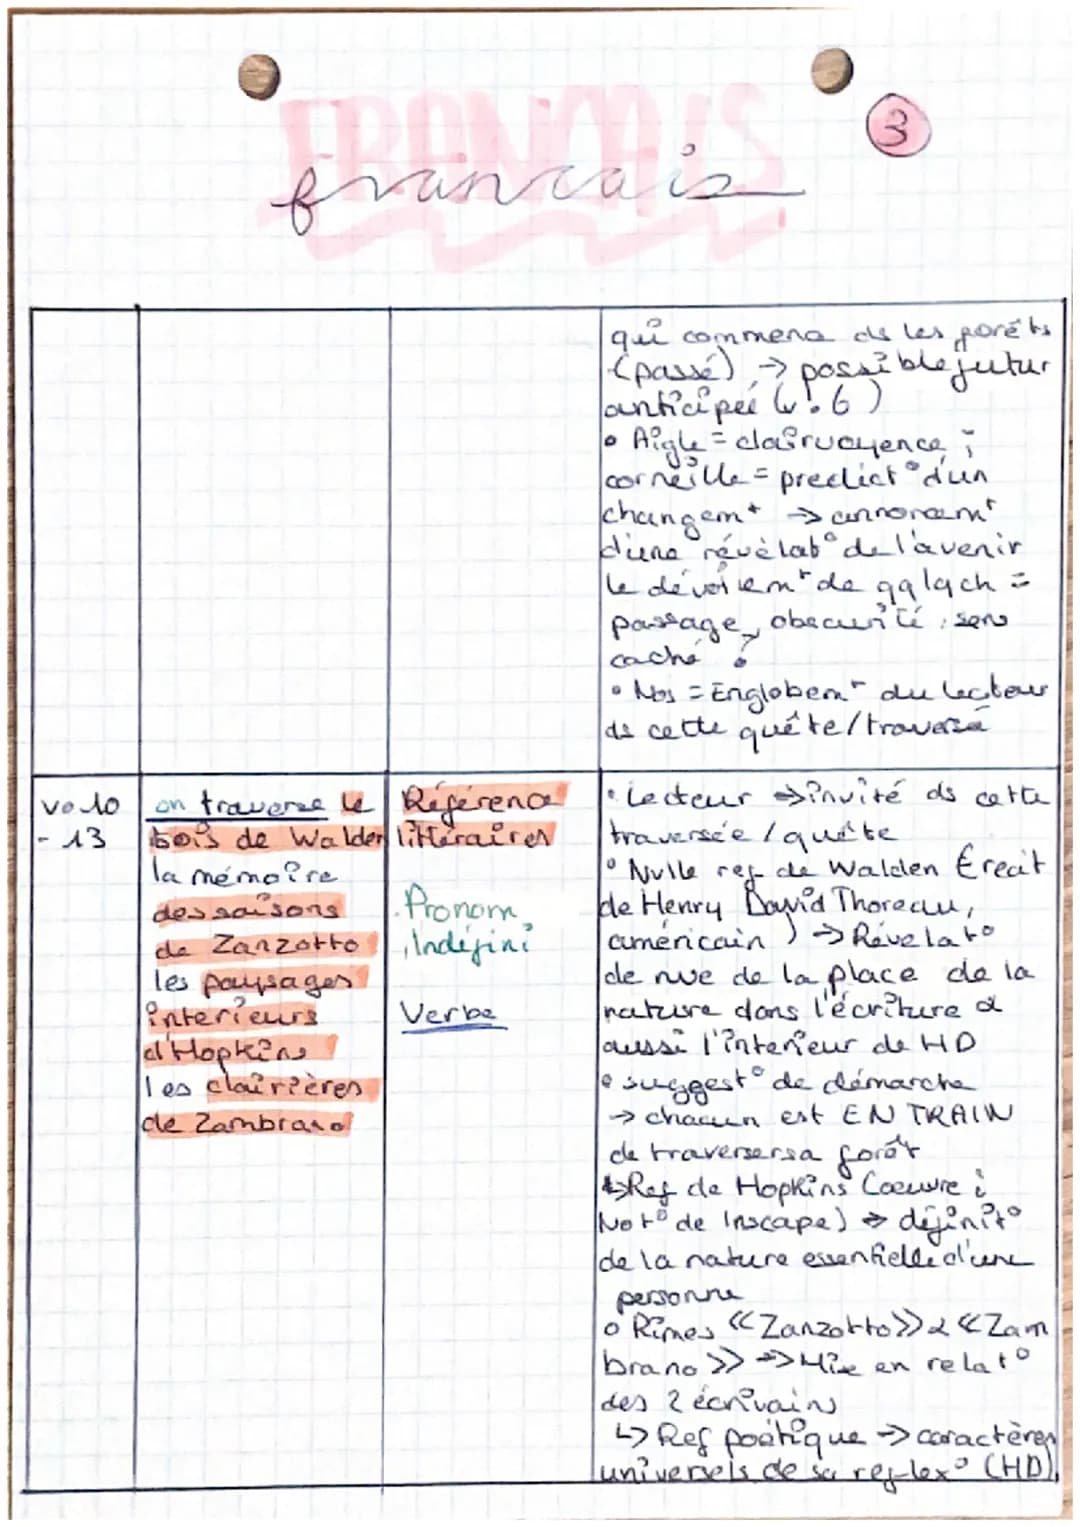 FRANCAIS
francais
3
qui commence ds les forêts
(passé) → possible futur
anticipée (v.6)
• Aigle = clairvoyence ;
corneille = predict° d'un
changemt → annoncemt
d'une révélat° de l'avenir
le dévoilemt de qqlqch =
passage, obscurité, sens
caché
• Nos = Englobemt du lecteur
ds cette quête/traversé
vo 10
- 13
on traverse le
bois de Walden
la mémoire
des saisons
de Zanzotto
les paysages
interieurs
d'Hopkins
les clairières
de Zambrano
Référence
littéraires
Pronom
Indéfini
Verbe
• Lecteur → invité ds cette
traversée / quête
• Nvlle ref de Walden (recit
de Henry David Thoreau,
américain) → Révélat°
de nve de la place de la
nature dans l'écriture &
aussi l'interieur de HD
• suggest° de démarche
→ chacun est EN TRAIN
de traverser sa forêt
↳ Ref de Hopkins (oeuvre :
Not° de Inscape) → définit°
de la nature essentielle d'une
personne
• Rimes «Zanzotto» & «Zam
brano» → Mise en relat°
des 2 écrivains
↳ Ref poétique → caractères
universels de sa reflex° (HD)